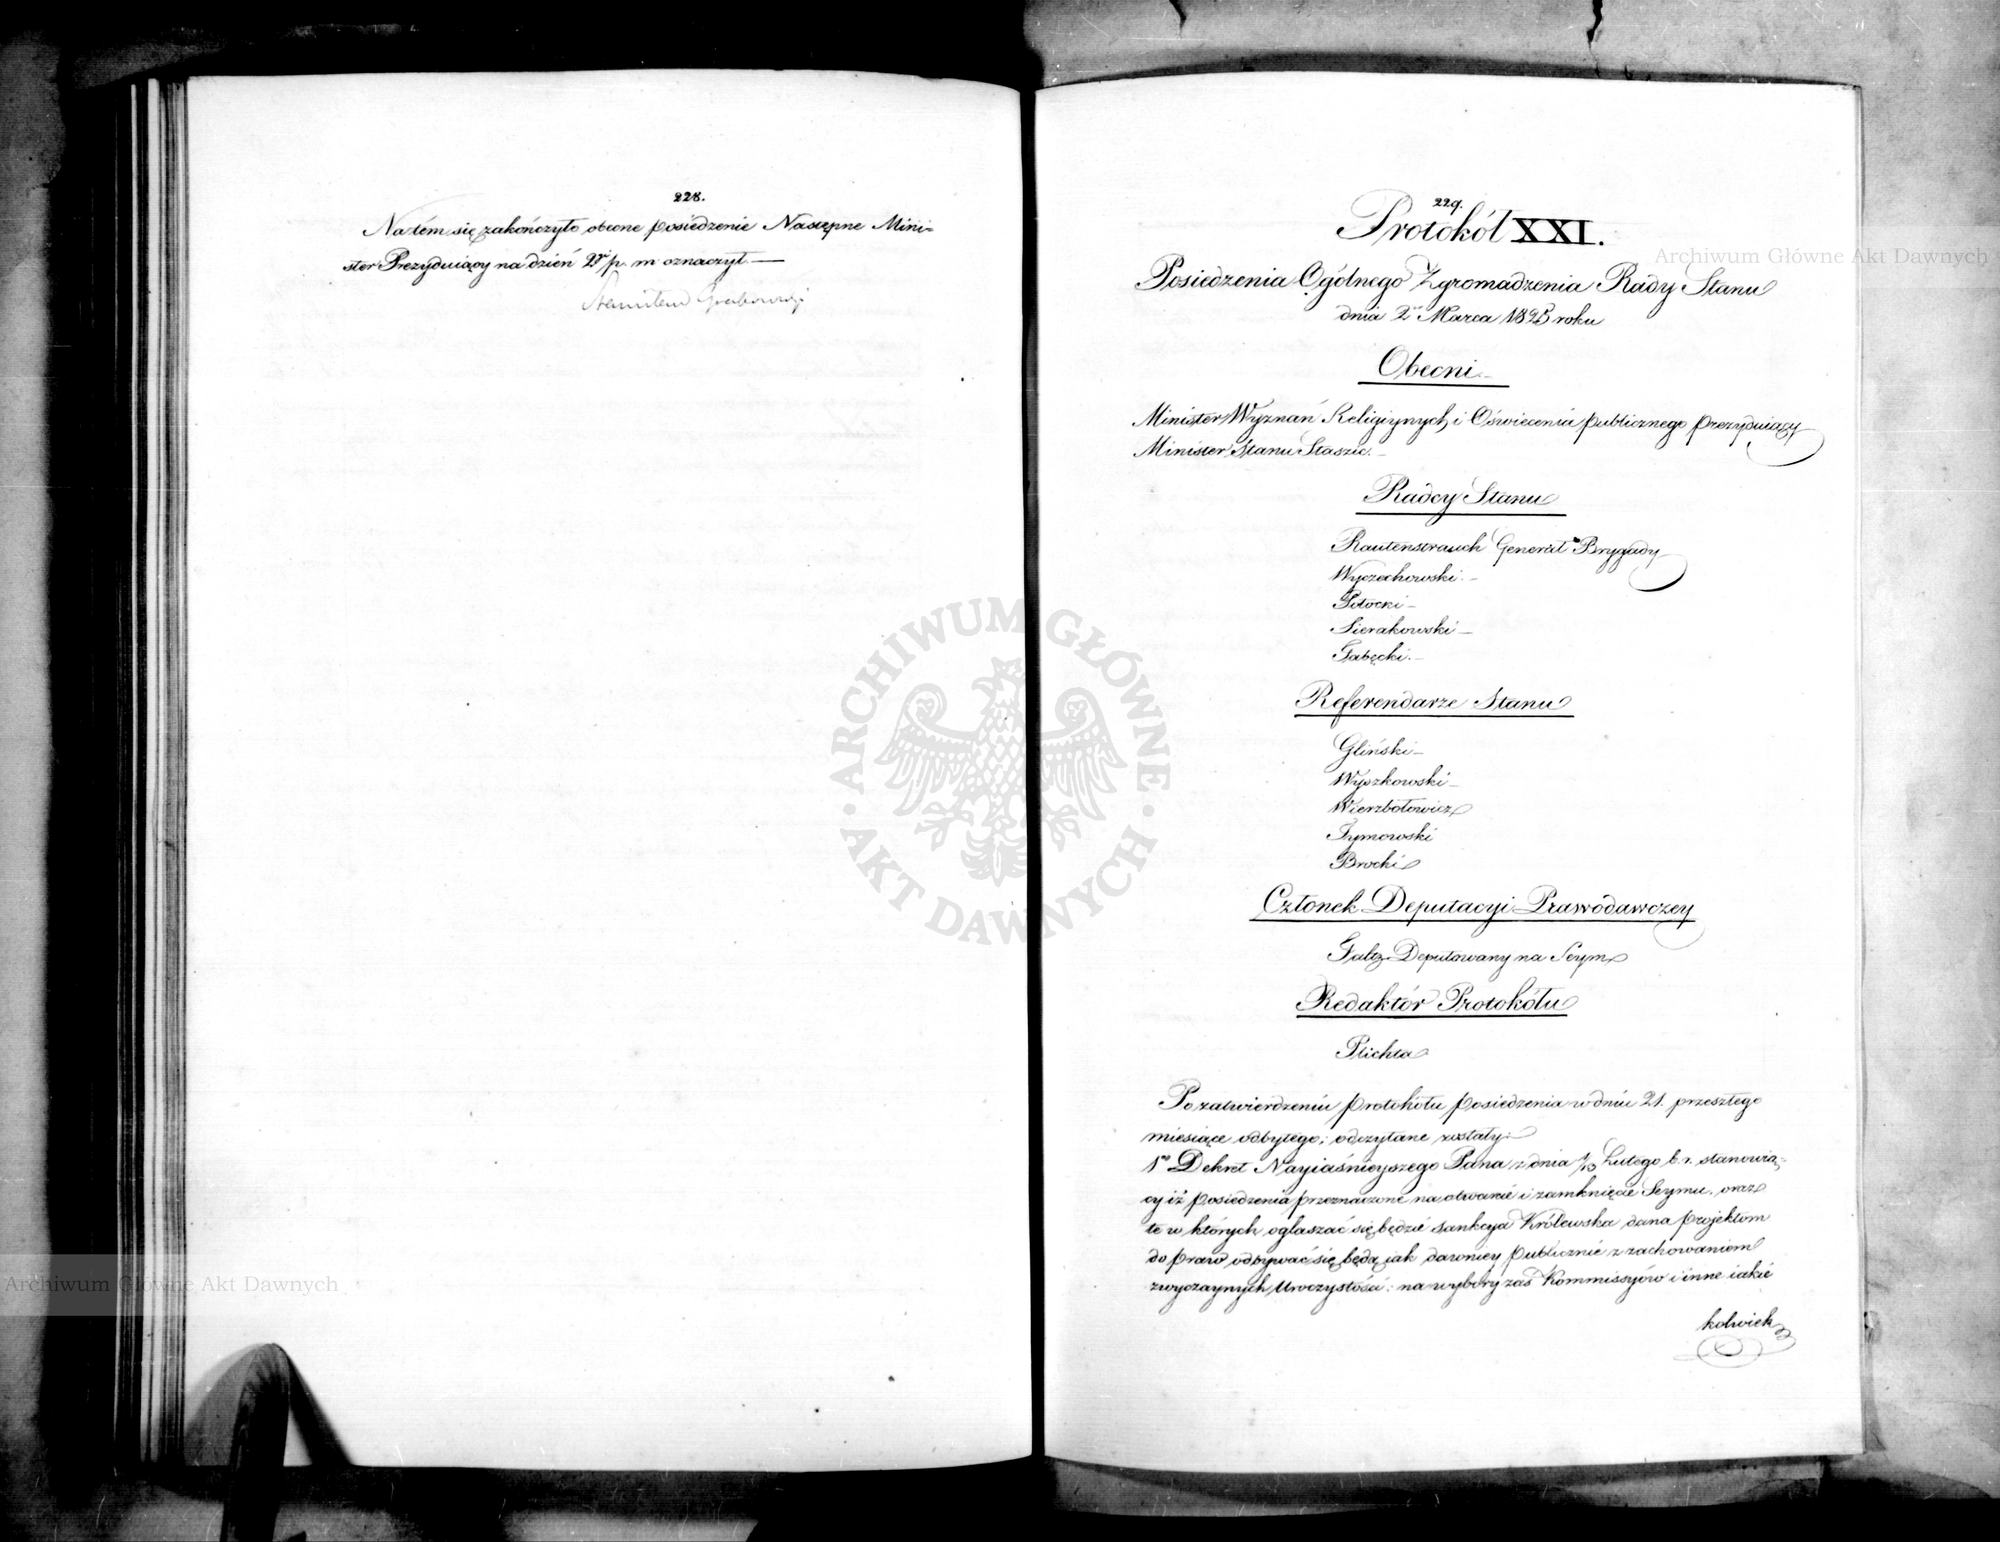 228.
Na tém się zakończyło obecne posiedzenie Następne Mini=
ster Prezyduiący na dzień 2go p. m oznaczył —
Stanisław Grabowski
229.
Protokół XXI.
Posiedzenia Ogólnego Zgromadzenia Rady Stanu
dnia 2go Marca 1825 roku
Obecni
Minister Wyznań Religiynych i Oświecenia publicznego prezyduiący
Minister Stanu Staszic.
Radcy Stanu
Rautenstrauch Generał Brygady
Wyczechowski.
Potocki
Sierakowski
Gałęcki.
Referendarze Stanu
Gliński
Wyszkowski
Wierzbołowicz
Tymowski
Brocki
Członek Deputacyi Prawodawczey
Faltz Deputowany na Seym
Redaktór Protokółu
Plichta
Po zatwierdzeniu protokółu posiedzenia w dniu 21. przeszłego
miesiące odbytego; odczytane zostały:
1o Dekret Nayiaśnieyszego Pana z dnia 1/13 Lutego b. r. stanowią=
cy iż posiedzenia przeznaczone na otwarcie i zamknięcie Seymu, oraz
te w których ogłaszać się będzie sankcya Królewska dana projektom
do praw odbywać się będą jak dawniey publicznie z zachowaniem
zwyczaynych Uroczystości: na wybory zaś Kommissyów i inne iakie
kolwiek
Archiwum Główne Akt Dawnych
Archiwum Główne Akt Dawnych
ARCHIWUM GŁÓWNE AKT DAWNYCH